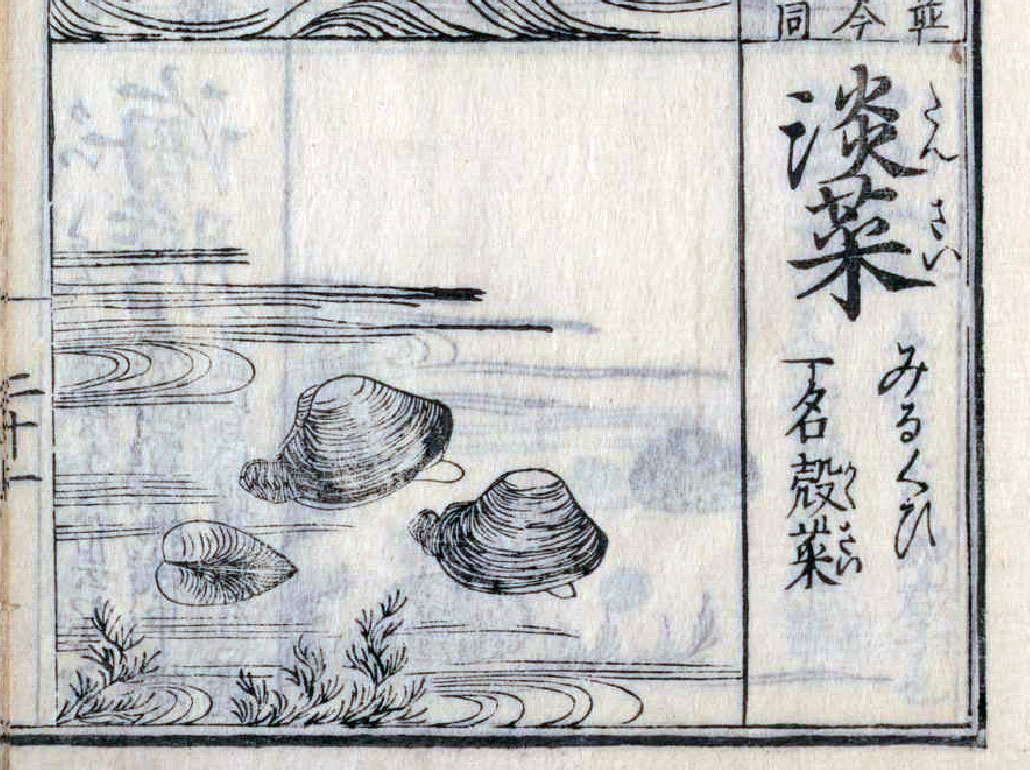 並
今
同
淡菜
たんさい
みるくひ
一名殻菜
かくさい
二十一